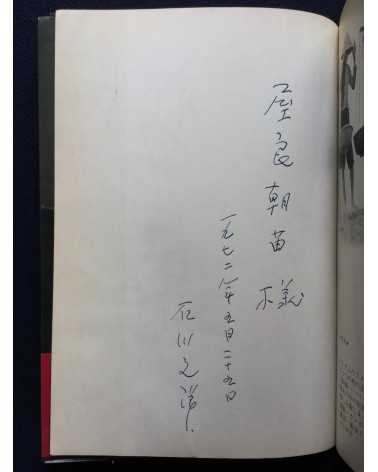 屋良朝苗様
一九七二年五月二十五日
石川文洋